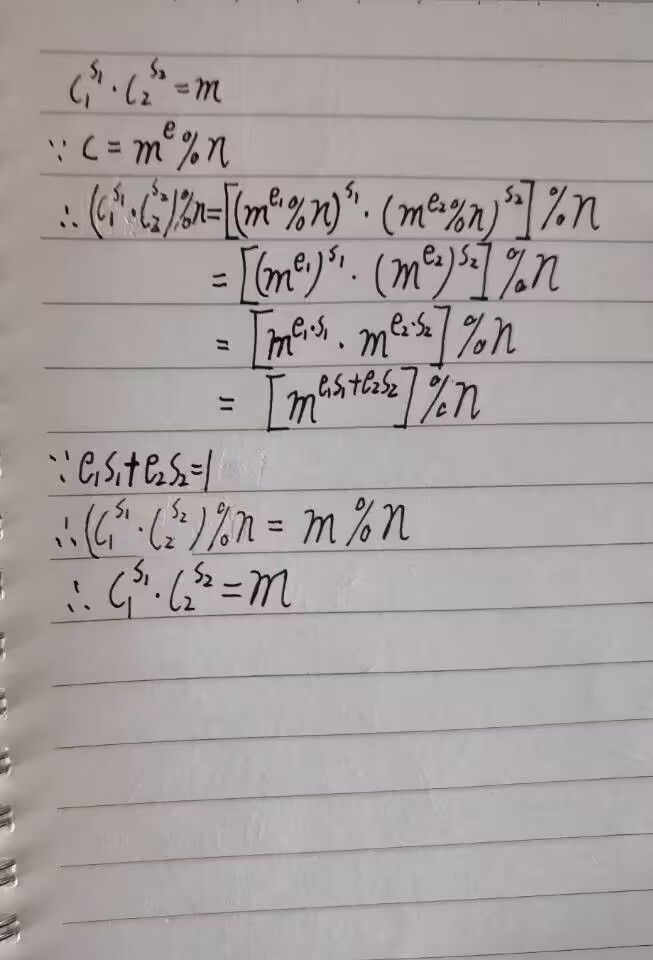 C₁^S₁ · C₂^S₂ = m
∵ C = m^e % n
∴ (C₁^S₁ · C₂^S₂) % n = [(m^e₁ % n)^S₁ · (m^e₂ % n)^S₂] % n
= [(m^e₁)^S₁ · (m^e₂)^S₂] % n
= [m^e₁·S₁ · m^e₂·S₂] % n
= [m^e₁S₁+e₂S₂] % n
∵ e₁S₁+e₂S₂=1
∴ (C₁^S₁ · C₂^S₂) % n = m % n
∴ C₁^S₁ · C₂^S₂ = m